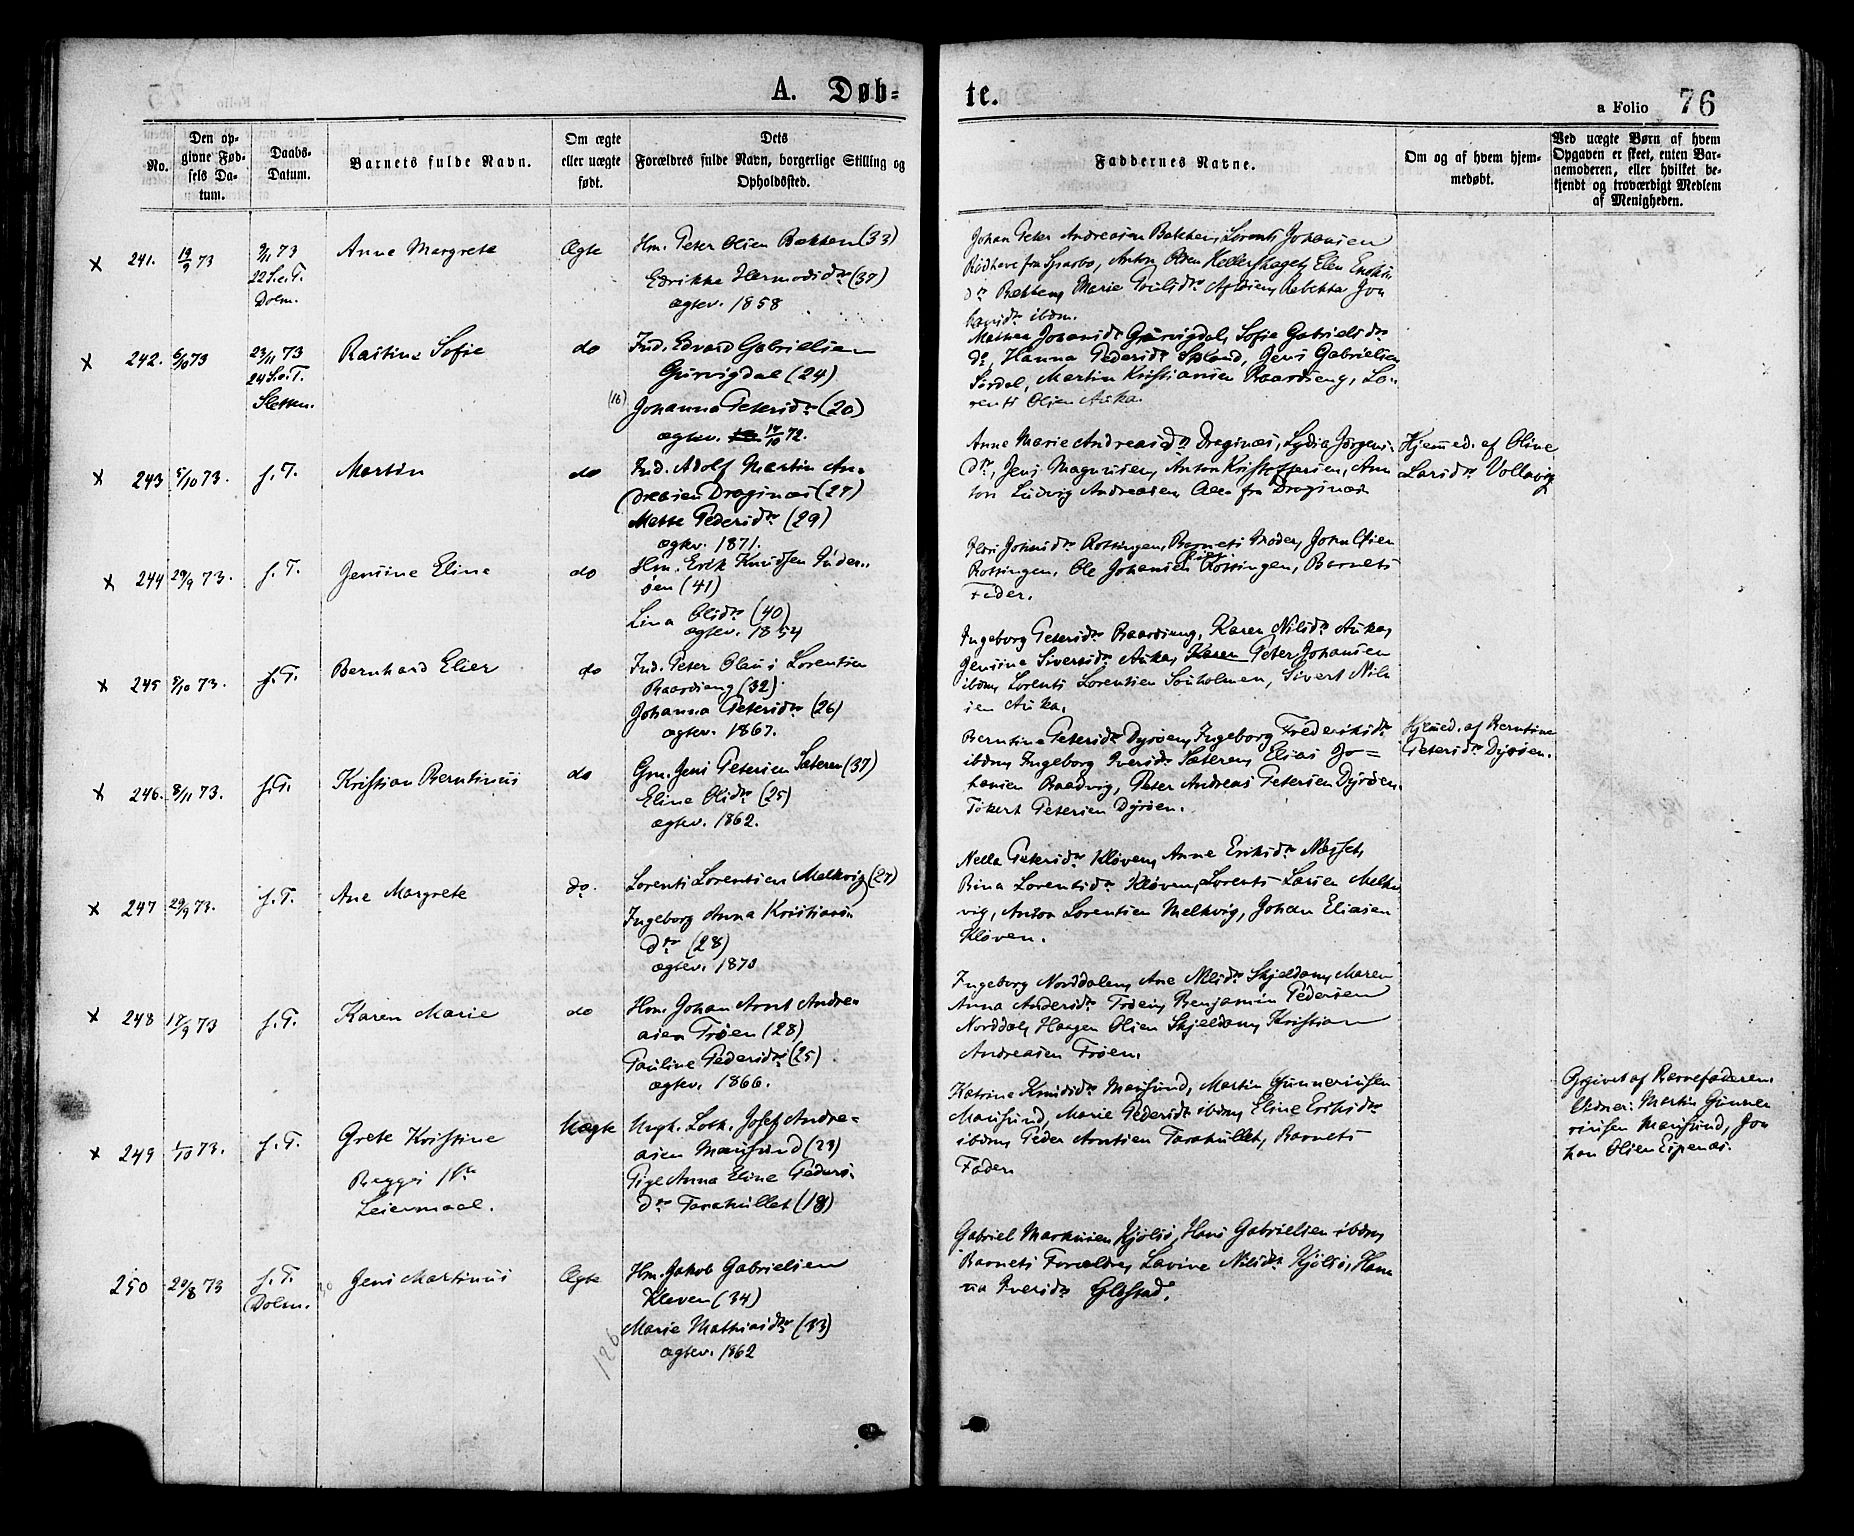 A. Døb-
te.
a Folio 76
No.
Den op-
givne Fød-
sels Da-
tum.
Daabs-
Datum.
Barnets fulde Navn.
Om ægte
eller uægte
født.
Dets
Forældres fulde Navn, borgerlige Stilling og
Opholdssted.
Faddernes Navne.
Om og af hvem hjem-
medøbt.
Ved uægte Børn af hvem
Opgaven er skeet, enten Bar-
nemoderen, eller hvilket be-
kjendt og troværdigt Medlem
af Menigheden.
x 241. 19/9 73
9/11 73
22 S.e.T.
Dolm.
Anne Margrete
Ægte
Hm. Peter Olsen Bekken (33)
Edrikke Hermodsdr. (37)
ægtev. 1858
Johan Peter Andreasen Bekken, Lorents Johansen
Rødhave fra Sparbo, Anton Olsen Hellershaget, Elen
dr. Bekken, Marie Poulsdr. Rebekka Jon
ibdm.
x 242. 5/10 73
23/11 73
24 S.e.T.
Sletten.
Rastine Sofie
do
Ind. Edvard Gabrielsen
Gurvigdal (24)
(16) Johanna Petersdr. (20)
ægtev. 14/10 72.
Johansdr. Gurvigdal, Sofie Gabrielsdr.
do, Hanna Pedersdr. Jens Gabrielsen
Martin Kristiansen Baardseng, Lo-
rents Olsen Auka.
x 243 5/10 73.
s. T.
Martin
do
Ind. Adolf Martin An-
dreasen Dragsnæs (27)
Mette Pedersdr. (29)
ægtev. 1871.
Anne Marie Andreasdr. Dragsnæs, Lydia Jørgens-
dr., Jens Magnusen, Anton Kristoffersen, An-
ton Ludvig Andreasen, Alle fra Dragsnæs
Hjemmed. af Oline
Larsdr. Vollavig
x 244 29/9 73.
s. T.
Jensine Eline
do
Hm. Erik Knudsen Inder-
øen (41)
Lina Olsdr. (40)
ægtev. 1854
Johnsdr. Rottingen, Barnets Moder, John Olsen
Rottingen, Ole Johansen Rottingen, Barnets
Fader.
x 245 5/10 73.
s. T.
Bernhard Elier
do
Ind. Peter Olaus Lorentsen
Baardseng (32)
Johanna Petersdr. (26)
ægtev. 1867.
Ingeborg Petersdr. Baardseng, Karen Nilsdr. Auka,
Jensine Sivertsdr. Auka, Karen Peter Johansen
ibdm, Lorents Lorentsen Sauholmen, Sivert Nils-
sen Auka.
x 246. 8/11 73.
s. T.
Kristian Berntinus
do
Gm. Jens Petersen Sæteren (37)
Eline Olsdr. (25)
ægtev. 1862.
Berntine Petersdr. Dyrøen, Ingeborg Frederiksdr.
ibdm, Ingeborg Iversdr. Sæteren, Elias Jo-
hansen Raadvig, Peter Andreas Petersen Dyrøen.
Tøkert Petersen Dyrøen.
Hjemmed. af Berntine
Petersdr. Dyrøen.
x 247 29/9 73.
s. T.
Ane Margrete
do.
Lorents Lorentsen Melkvig (27)
Ingeborg Anna Kristians-
dr. (28)
ægtev. 1873
Nella Petersdr. Kløven, Anne Eriksdr. Næsset,
Bina Lorentsdr. Kløven, Lorents Larsen Melk-
vig, Anton Lorentsen Melkvig, Johan Eliasen
Kløven.
x 248 17/9 73
s. T.
Karen Marie
do
Hm. Johan Arnt Andre-
asen Frøen (28)
Pauline Pedersdr. (25)
ægtev. 1866.
Ingeborg Norddalen, Ane Nilsdr. Skjeldam, Maren
Anna Andersdr. Frøen, Benjamin Pedersen
Norddal, Haagen Olsen Skjeldam, Kristian
Andreasen Frøen.
x 249 1/10 73.
s. T.
Grete Kristine
Begges 1ste
Leiermaal.
Uægte
Ungk. Loth. Josef Andre-
asen Mausund (23)
Pige Anna Eline Peders-
dr. Tarahullet (18)
Katrine Knudsdr. Mausund, Martin Gunneriusen
Mausund, Marie Pedersdr. ibdm, Eline Eriksdr.
ibdm, Peder Arntsen Tarahullet, Barnets
Fader
Opgivet af Barnefaderen.
Vidner: Martin Gunne-
riusen Mausund, Jo-
han Olsen
250 20/8 73
s. T.
Dolm.
Jens Martinus
Ægte
Hm. Jakob Gabrielsen
Kleven (34)
Marie Mathiasdr. (33)
ægtev. 1862
126
Gabriel Markusen Kjølsø, Hans Gabrielsen ibdm,
Barnets Forældre, Lavine Nilsdr. Kjølsø, Han-
na Iversdr. Glastad.